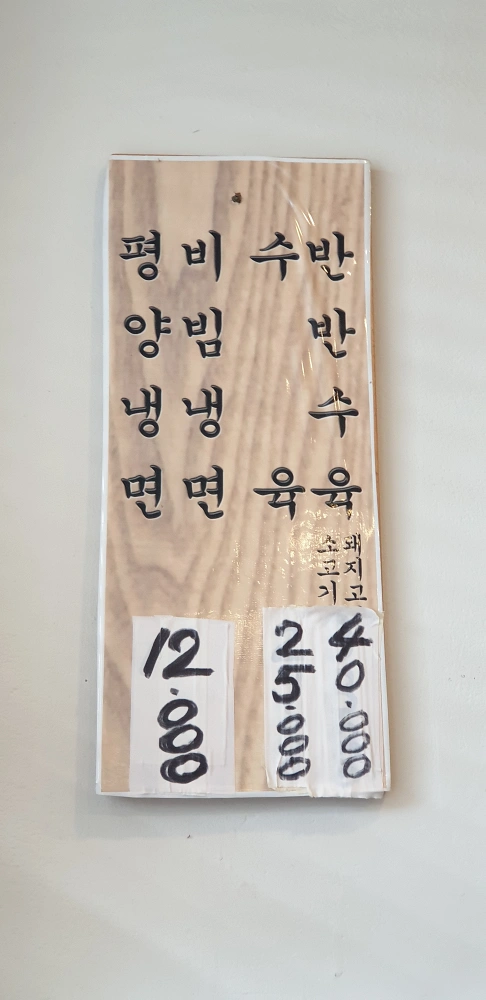 반반수육
돼지고
소고기
40.000
수육
25.000
비빔냉면
평양냉면
12.000